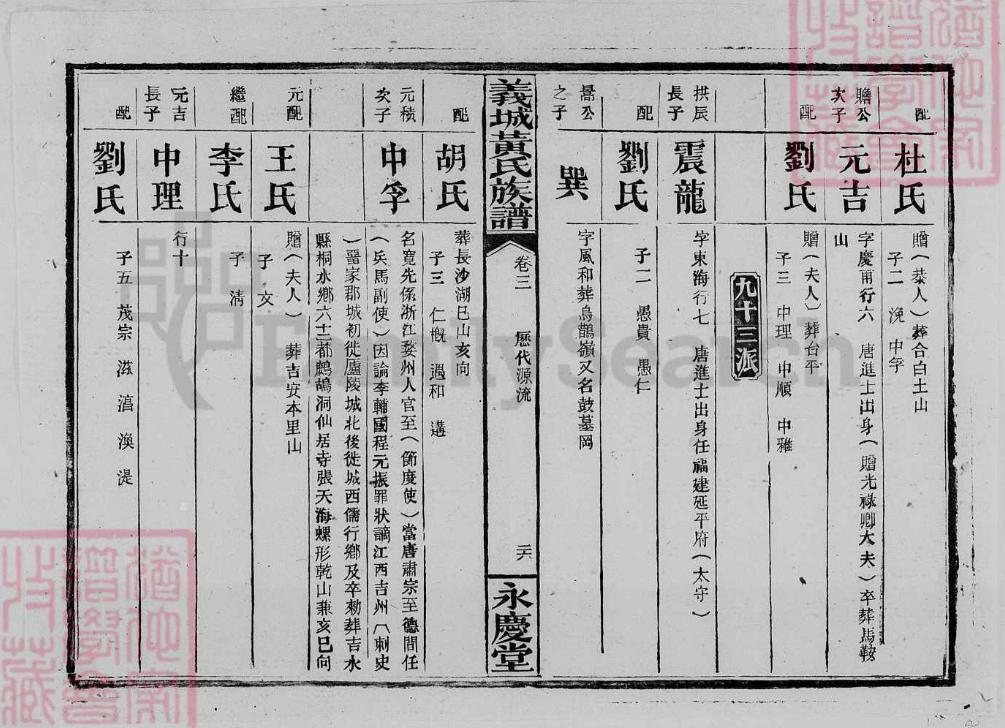 配 杜氏 贈(恭人)葬合白土山
子二 浼 中孚
贍公次子 元吉 字慶甫行六 唐進士出身(贈光祿卿大夫)卒葬馬鞍
山
配 劉氏 贈(夫人)葬台平
子三 中理 中順 中雅
九十三派
拱辰長子 震龍 字東海行七 唐進士出身任福建延平府(太守)
配 劉氏 子二 愚貴 愚仁
公之子 巽 字風和葬烏鵲嶺又名鼓墓岡
義城黃氏族譜 卷三 歷代源流 二六 永慶堂
配 胡氏 葬長沙湖巳山亥向
子三 仁慨 過和 遘
元積次子 中孚 名寬先係浙江婺州人官至(節度使)當唐肅宗至德間任
(兵馬副使)因論李輔國程元振罪狀謫江西吉州(刺史
)晉家郡城初徙廬陵城北後徙城西儒行鄉及卒勅葬吉水
縣桐水鄉六十三都鷓鴣洞仙居寺張天海螺形乾山兼亥巳向
元配 王氏 贈(夫人)葬吉安本里山
子 文
繼配 李氏 子 清
元吉長子 中理 行十
配 劉氏 子五 茂宗 滋 滈 渙 湜